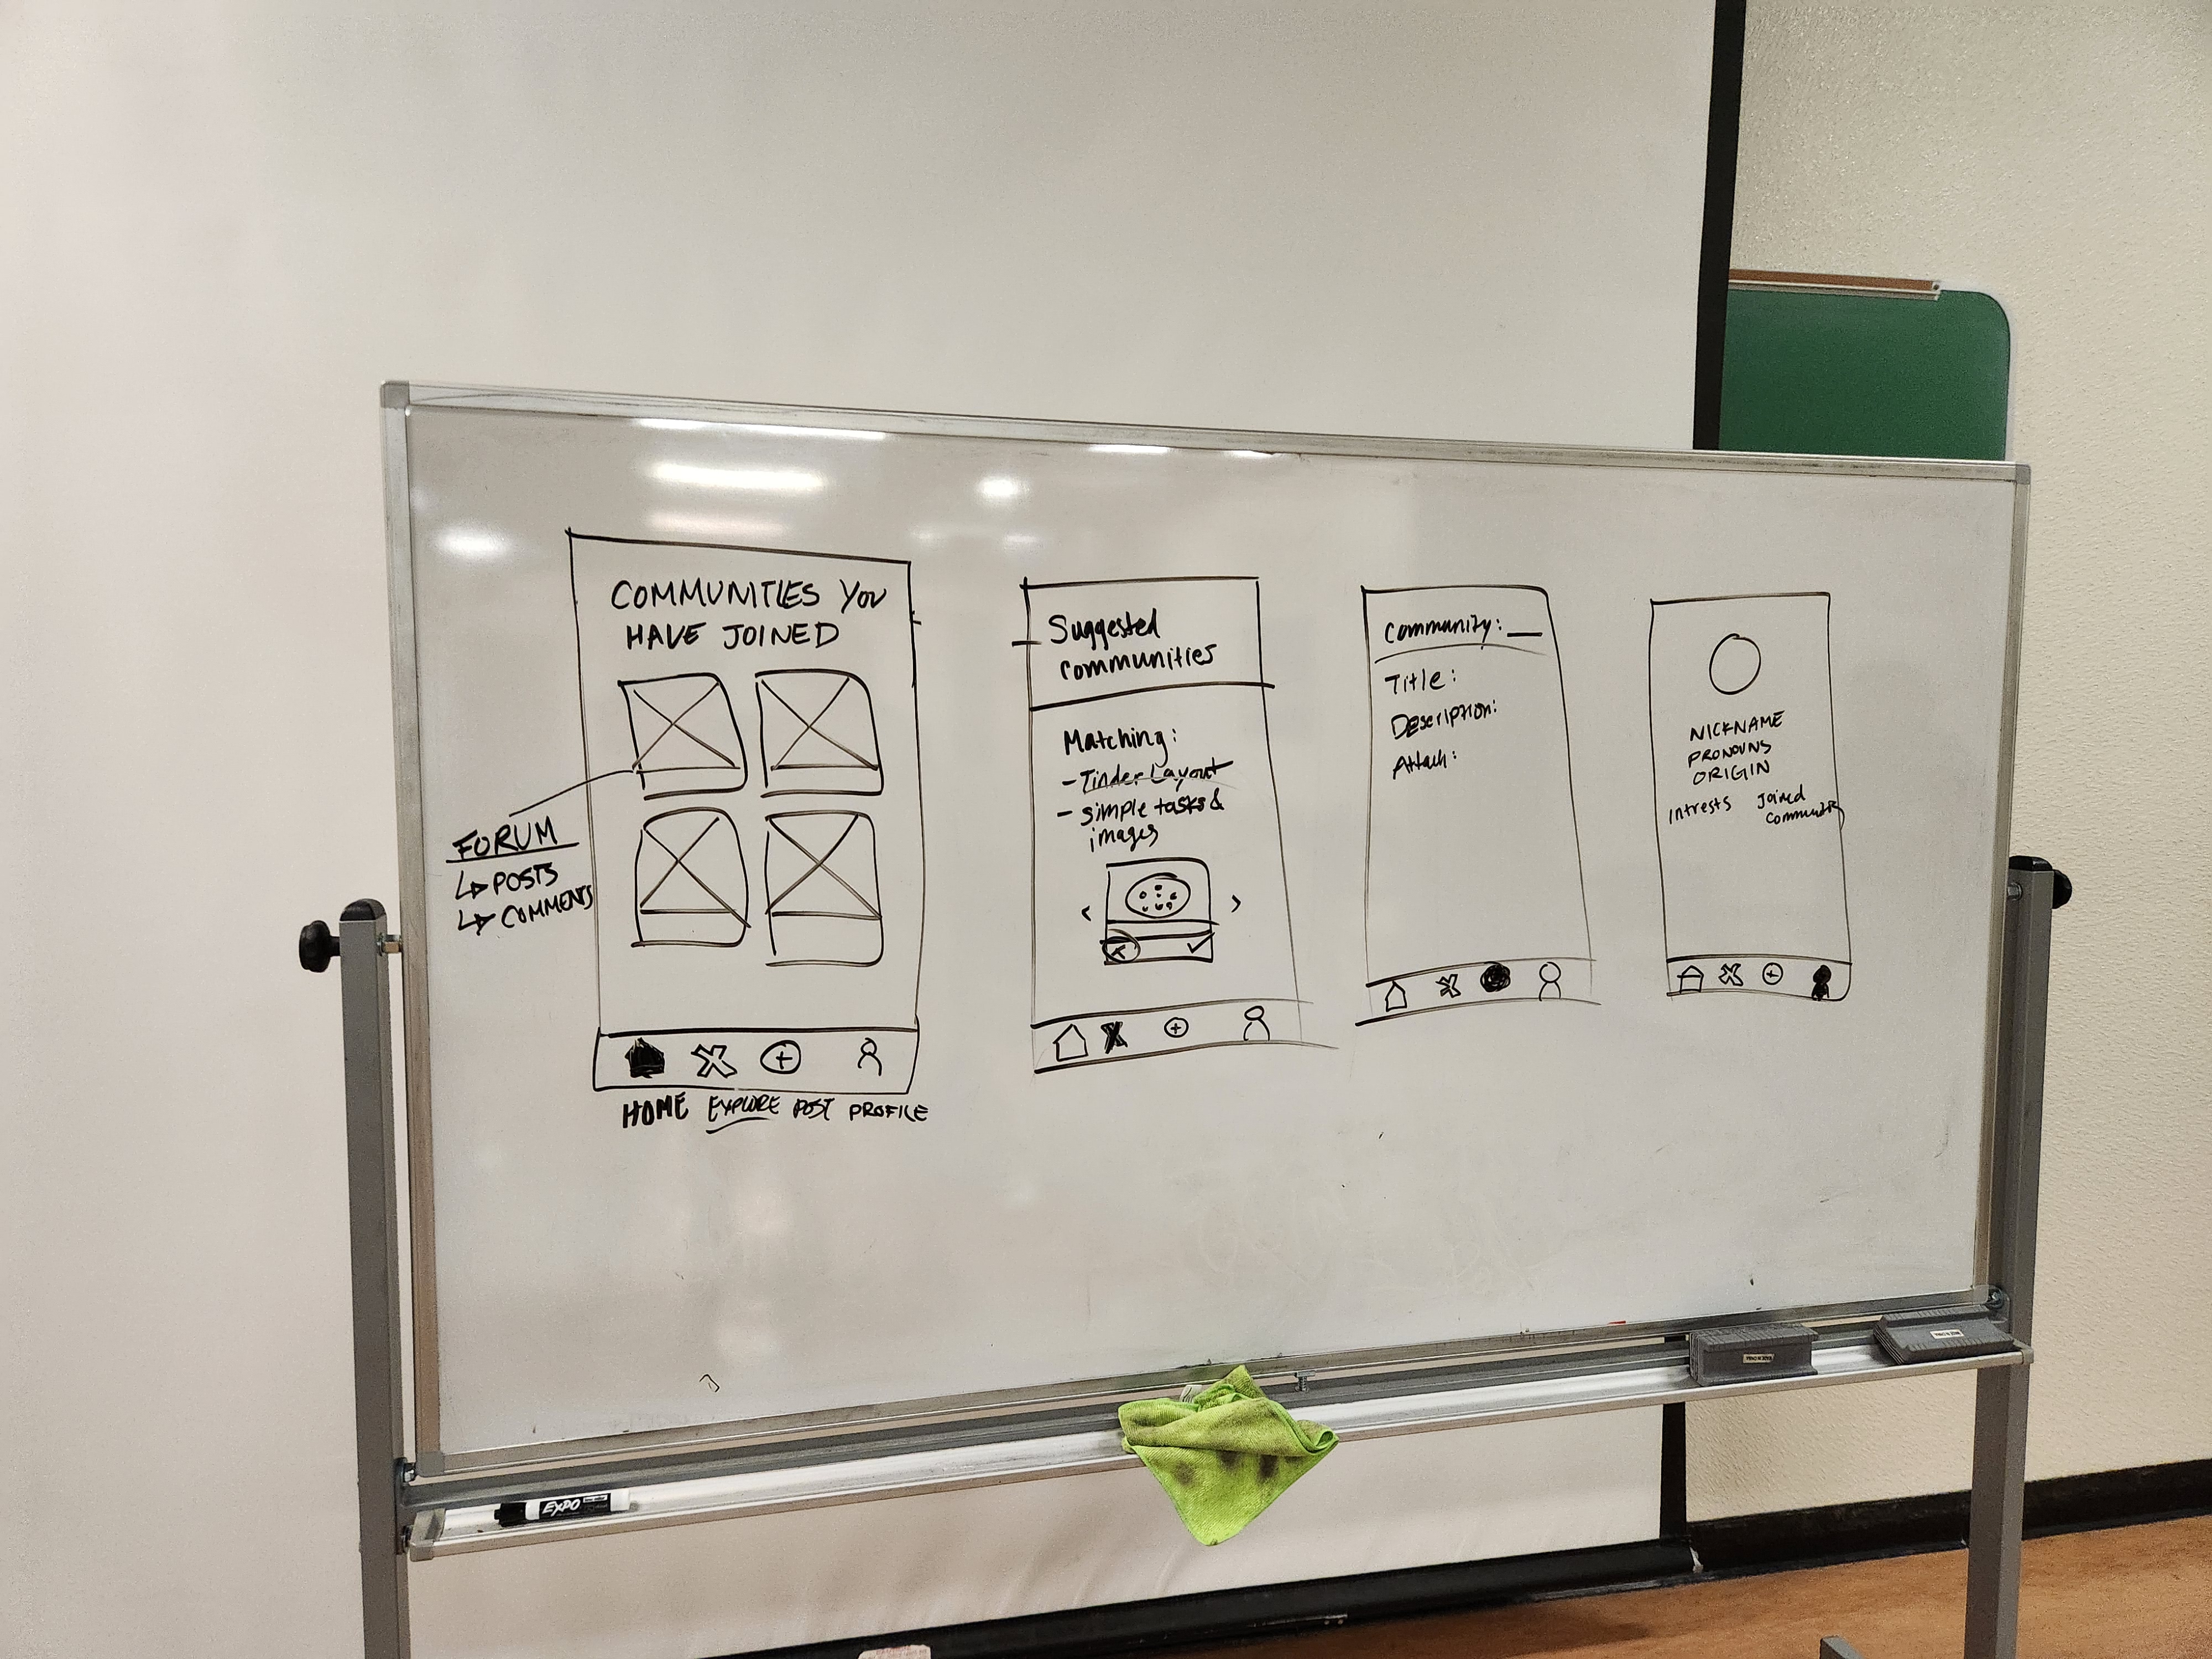 COMMUNITIES YOU
HAVE JOINED
FORUM
↳ POSTS
↳ COMMENTS
HOME EXPLORE POST PROFILE
Suggested
communities
Matching:
- Tinder Layout
- simple tasks &
images
Community: __
Title:
Description:
Attach:
NICKNAME
PRONOUNS
ORIGIN
Intrests
Joined
Community
EXPO